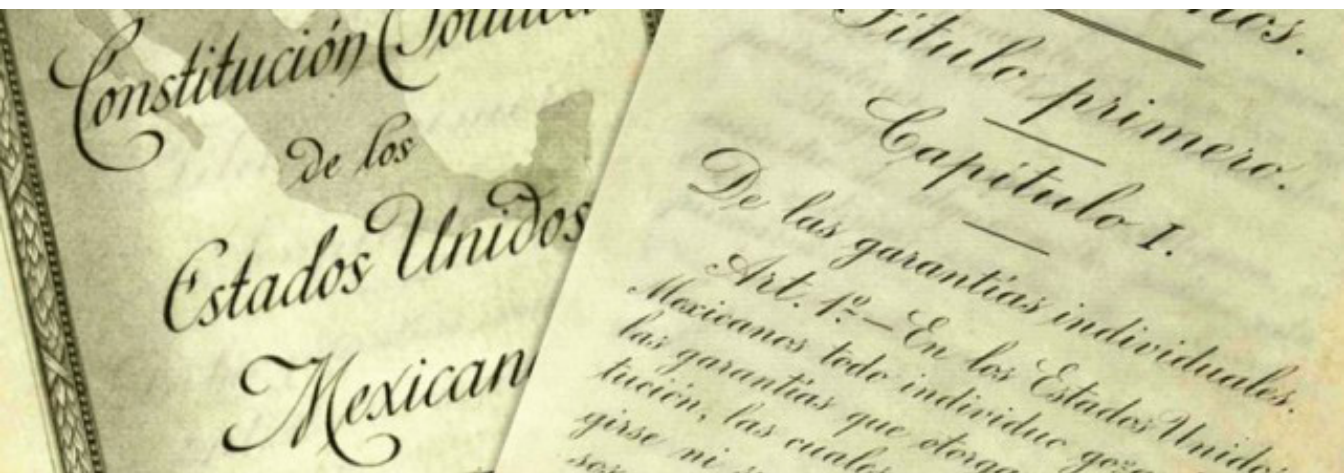 Constitución
de los
Estados Unidos
Mexican
Título primero.
Capítulo I.
De las garantías individuales.
Art. 1º.—En los Estados Unid
Mexicanos todo individuo goza
las garantías que otorga
tución, las cuales
girse ni